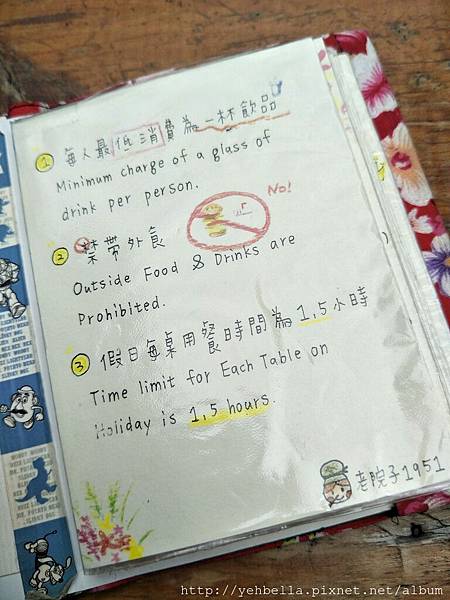 1 每人最低消費為一杯飲品
Minimum charge of a glass of
drink per person.
No!
2 禁帶外食
Outside Food & Drinks are
Prohibited.
3 假日每桌用餐時間為1.5小時
Time limit for Each Table on
Holiday is 1.5 hours.
老院子1951
http://yehbella.pixnet.net/album